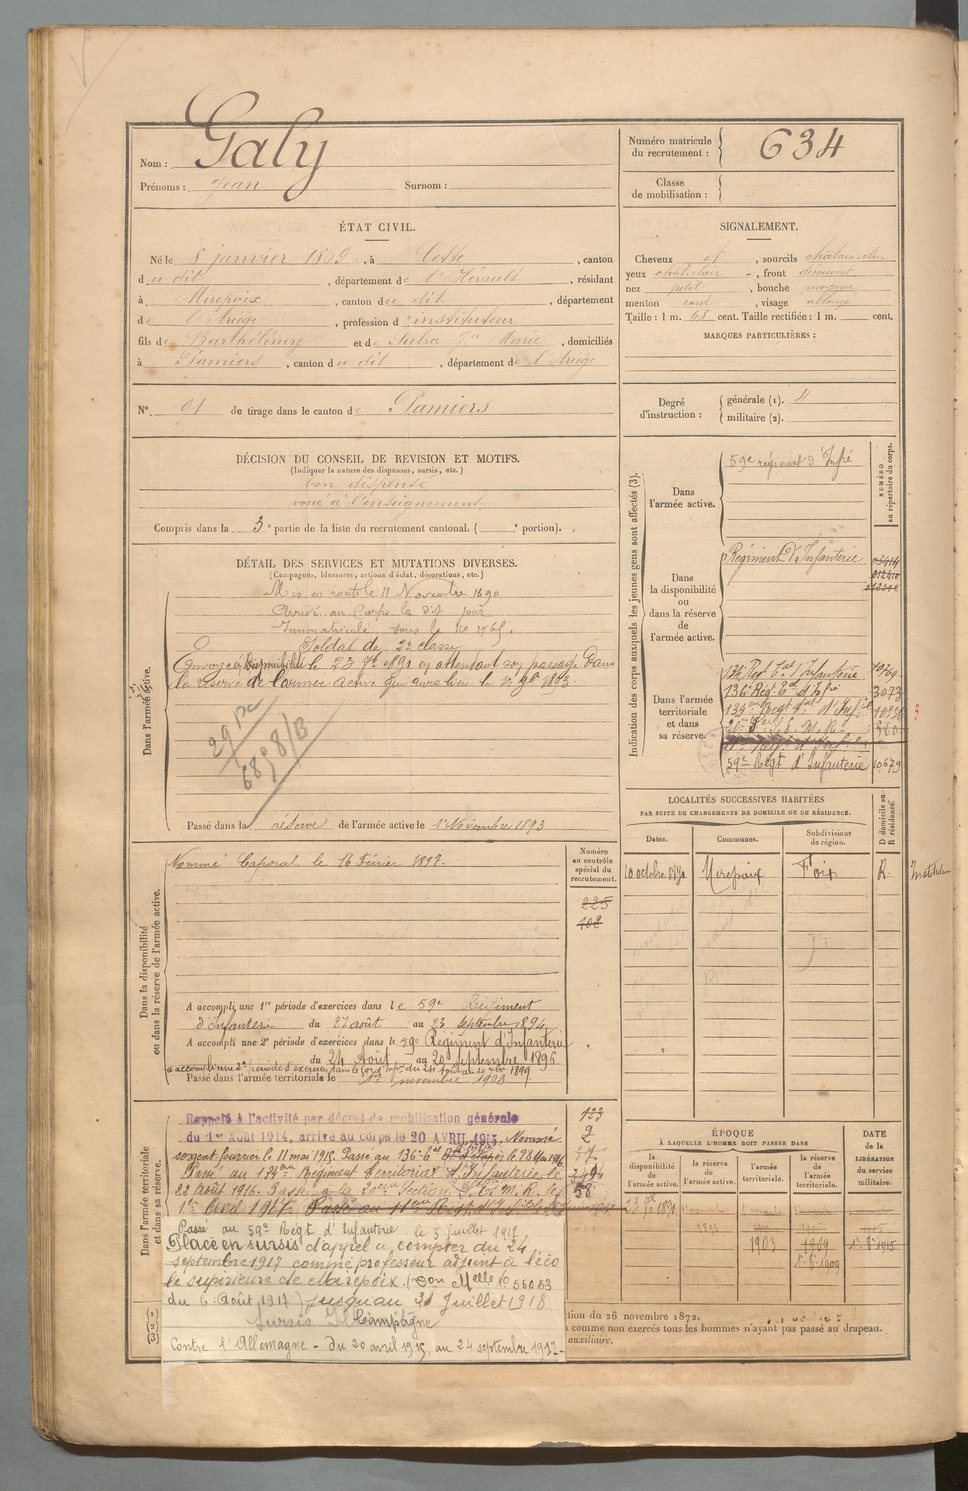 Nom : Galy
Prénoms : Jean Surnom :
Numéro matricule du recrutement : 634
Classe de mobilisation :
ÉTAT CIVIL.
Né le 8 janvier 1869, à Cette, canton
du dit, département de l'Hérault, résidant
à Mirepoix, canton du dit, département
de l'Ariège, profession d'instituteur
fils de Barthélémy et de Subra Marie, domiciliés
à Pamiers, canton du dit, département de l'Ariège
N° 91 de tirage dans le canton de Pamiers
SIGNALEMENT.
Cheveux et, sourcils chatain clair
yeux chat. clair, front découvert
nez petit, bouche moyenne
menton rond, visage allongé
Taille : 1 m. 68 cent. Taille rectifiée : 1 m. cent.
MARQUES PARTICULIÈRES :
Degré d'instruction : générale (1). 4
militaire (2).
DÉCISION DU CONSEIL DE REVISION ET MOTIFS.
(Indiquer la nature des dispenses, sursis, etc.)
bon dispensé
voué à l'enseignement
Compris dans la 3e partie de la liste du recrutement cantonal. ( e portion).
DÉTAIL DES SERVICES ET MUTATIONS DIVERSES.
(Campagnes, blessures, actions d'éclat, décorations, etc.)
Dans l'armée active.
Mis en route le 11 Novembre 1890
Arrivé au Corps le dit jour
Immatriculé sous le no
Soldat de 2e classe
Envoyé en Disponibilité le 23 7bre 1891 en attendant son passage dans
la réserve de l'armée active qui aura lieu le 1er 9bre 1893.
Passé dans la réserve de l'armée active le 1er Novembre 1893
Indication des corps auxquels les jeunes gens sont affectés (3).
NUMÉRO au répertoire du corps.
Dans l'armée active.
59e régiment d'Infrie
Dans la disponibilité ou dans la réserve de l'armée active.
Régiment d'Infanterie
Dans l'armée territoriale et dans sa réserve.
134 Regt Tal Infanterie
136e Régt
3073
134eme Regt
20e S. E. M. R.
59e Régt d'Infanterie 10679
LOCALITÉS SUCCESSIVES HABITÉES
PAR SUITE DE CHANGEMENTS DE DOMICILE OU DE RÉSIDENCE.
Dates. Communes. Subdivisions de région. D domicile ou R résidence.
10 octobre 1890 Mirepoix Foix R.
Dans la disponibilité ou dans la réserve de l'armée active.
Nommé Caporal le 16 Février 1897.
Numéro au contrôle spécial du recrutement.
225
102
A accompli une 1re période d'exercices dans le 59e Régiment
d'infanterie du 27 août au 23 septembre 1894
A accompli une 2e période d'exercices dans le 59e Régiment d'Infanterie
du 24 Août au 20 septembre 1896
Passé dans l'armée territoriale le 1er novembre 1903
Dans l'armée territoriale et dans sa réserve.
Rappelé à l'activité par décret de mobilisation générale
du 1er Août 1914, arrivé au corps le 20 AVRIL 1915. Nommé
sergent fourrier le 11 mai 1915. Passé au 136e le 28 Mai 1916.
Passé au 134eme Régiment Territorial d'Infanterie le
22 Août 1916. Passé à la 20eme Section S. E. M. R. le
1er Avril 1917.
123
2
58
Passé au 59e Régt d'Infanterie le 5 juillet 1917
Placé en sursis d'appel à compter du 24
septembre 1917 comme professeur adjoint à l'éco
le supérieure de Mirepoix. (Don Melle No 56053
du 6 Août 1917) jusqu'au 31 Juillet 1918
Campagne
Contre l'Allemagne - du 20 avril 1915 au 24 septembre 1917
ÉPOQUE
À LAQUELLE L'HOMME DOIT PASSER DANS
la disponibilité de l'armée active. la réserve de l'armée active. l'armée territoriale. la réserve de l'armée territoriale.
DATE de la LIBÉRATION du service militaire.
23 7bre 1891
1er novembre 1893
1903
1909
1-8-1909
1-8-1915
(1)
(2)
(3)
tion du 26 novembre 1872.
comme non exercés tous les hommes n'ayant pas passé au drapeau.
auxiliaire.